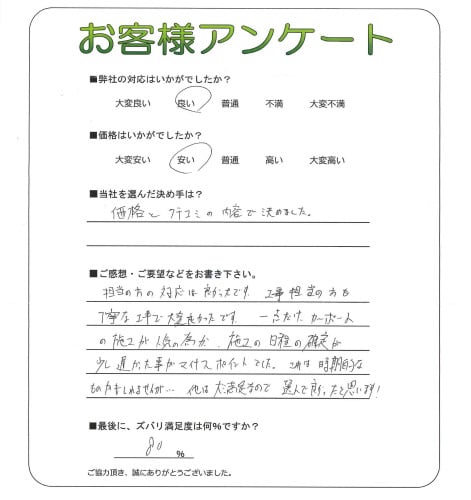 お客様アンケート
■弊社の対応はいかがでしたか？
大変良い 良い 普通 不満 大変不満
■価格はいかがでしたか？
大変安い 安い 普通 高い 大変高い
■当社を選んだ決め手は？
価格と クチコミの内容で決めました。
■ご感想・ご要望などをお書き下さい。
担当の方の対応は良かったです 工事担当の方も
丁寧な工事で大変良かったです 一点だけ、カーポート
の施工が人気の為か、施工の日程の確定が
少し遅かった事がマイナスポイントでした。これは時期的な
ものかもしれませんが… 他は大満足なので 選んで良かったと思います！
■最後に、ズバリ満足度は何％ですか？
80 %
ご協力頂き、誠にありがとうございました。